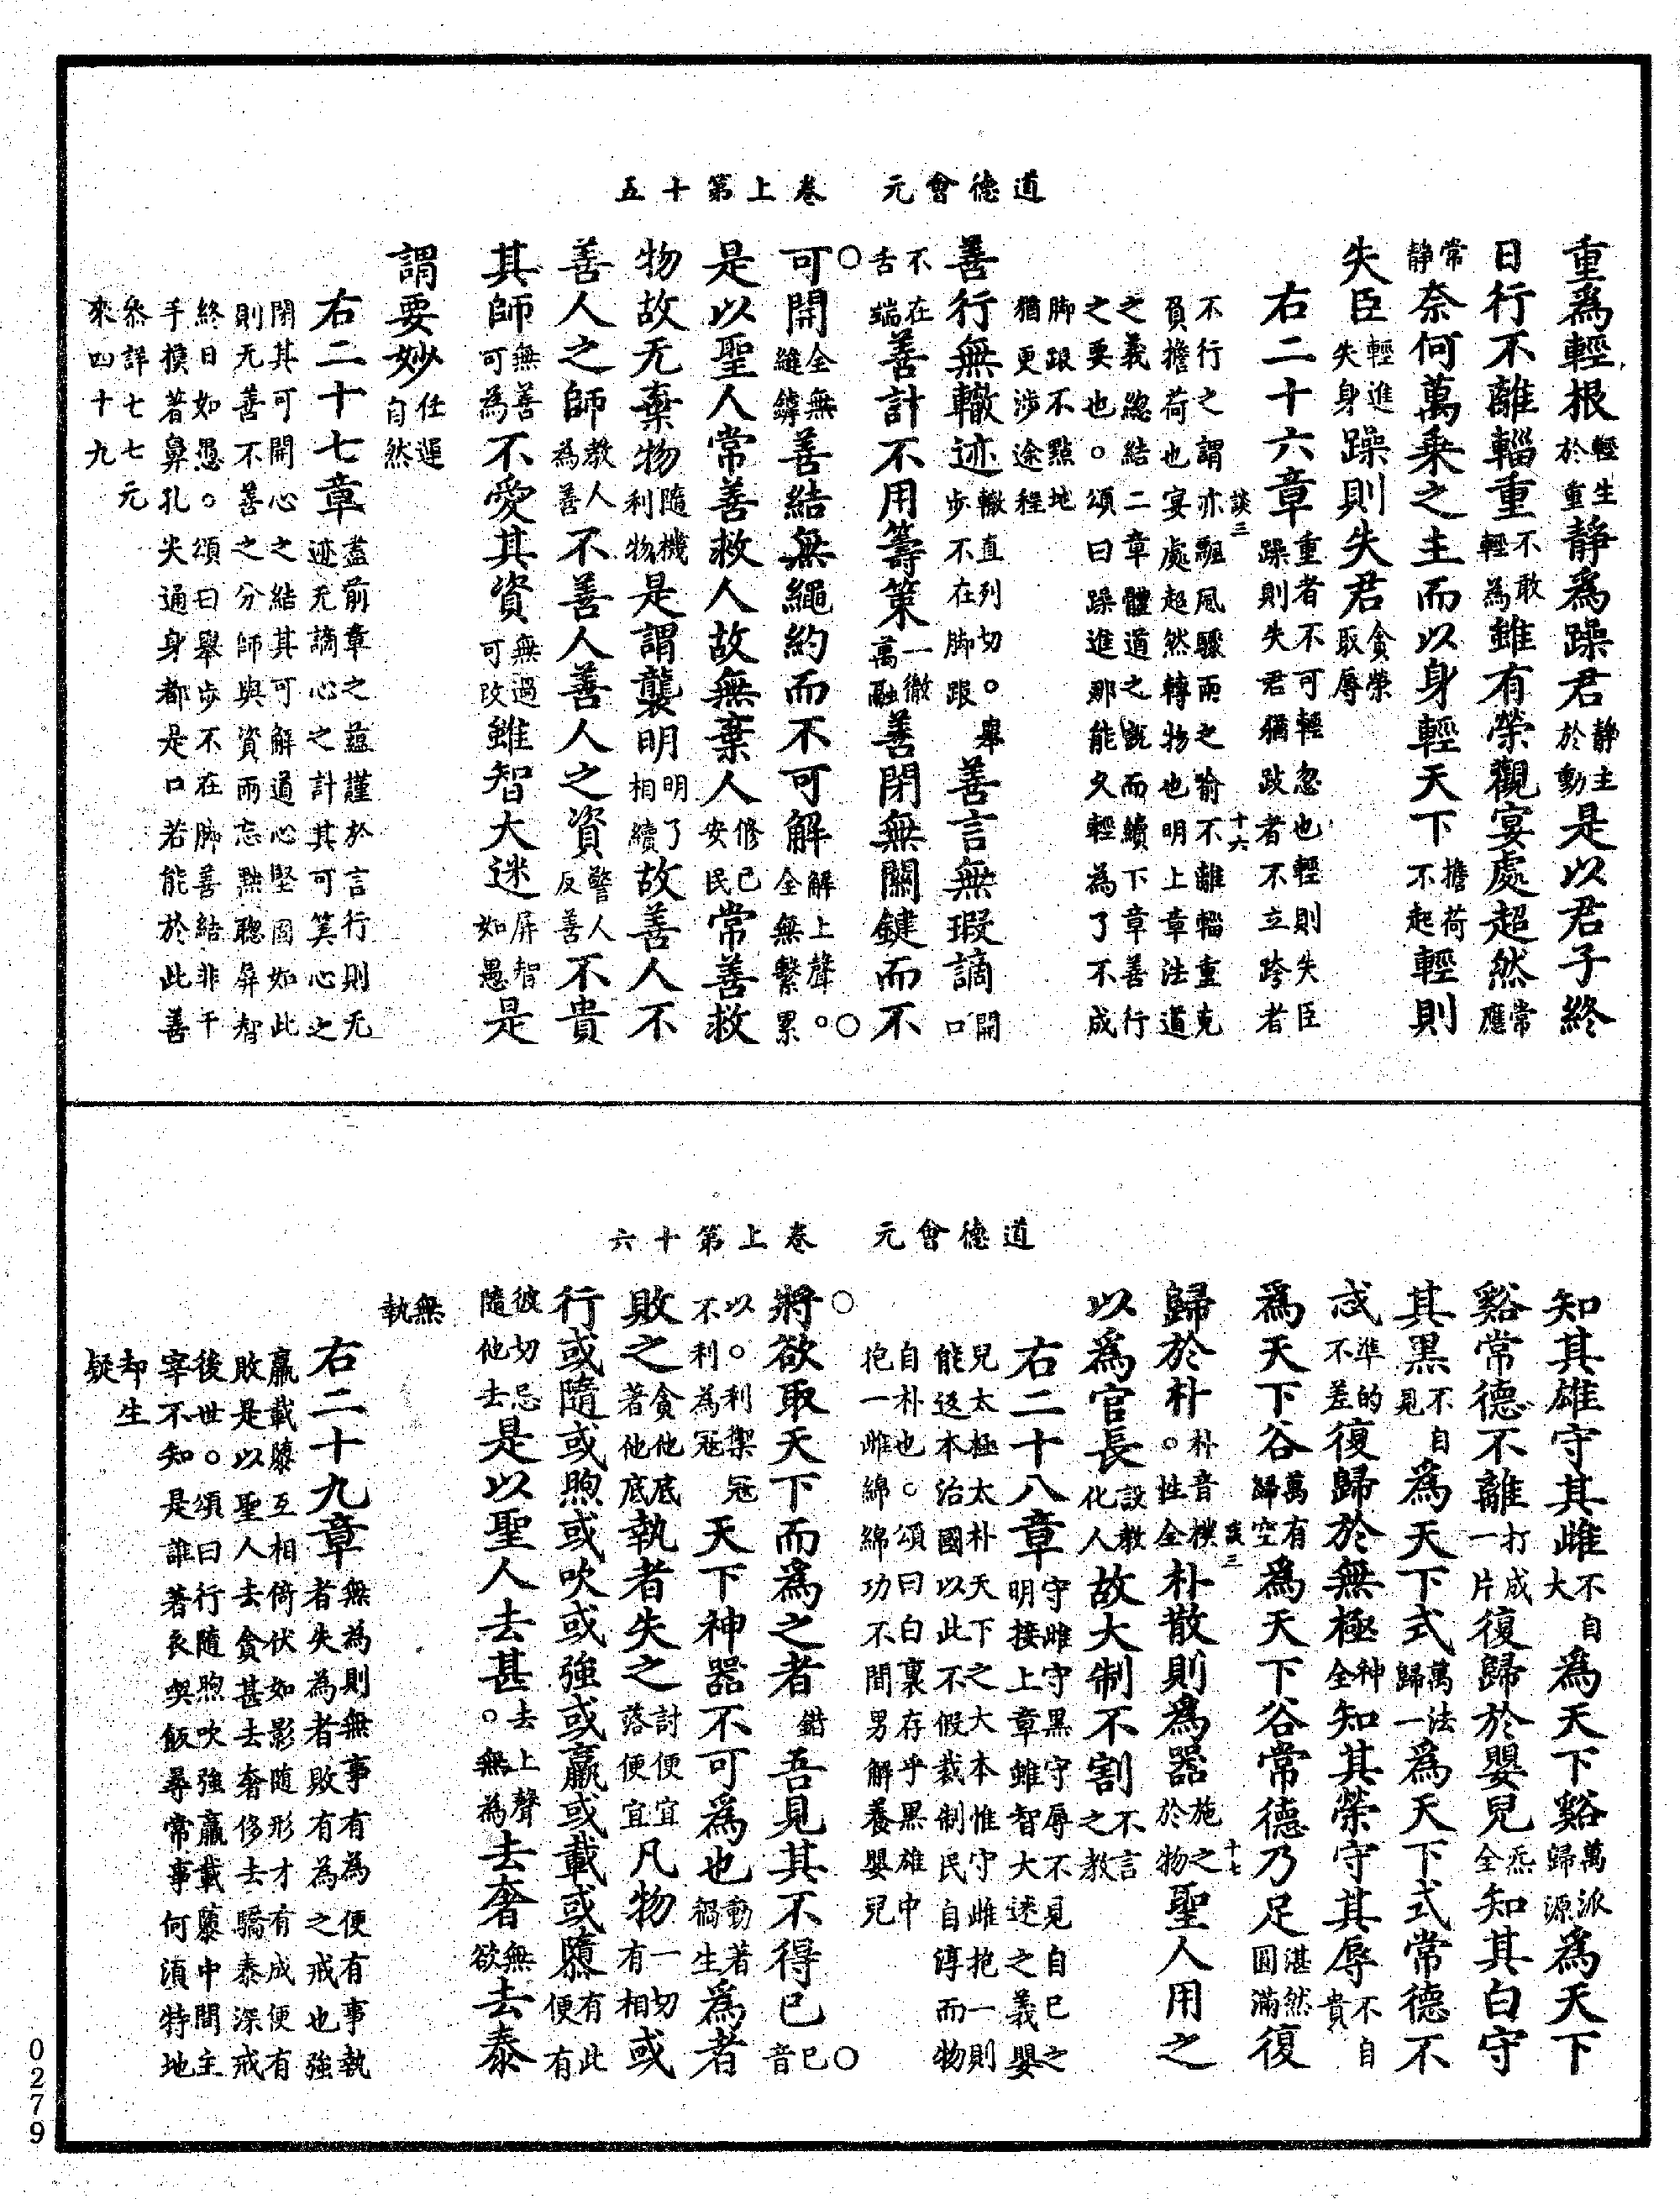 道德會元　卷上第十五
重爲輕根輕生於重靜爲躁君靜主於動是以君子終
日行不離輜重不敢輕為雖有榮觀宴處超然常應
常靜奈何萬乘之主而以身輕天下擔荷不起輕則
失臣輕進失身躁則失君貪榮取辱
右二十六章重者不可輕忽也輕則失臣躁則失君猶跂者不立跨者
談三　十六
不行之謂亦飄風驟雨之喻不離輜重克
負擔荷也宴處超然轉物也明上章注重道
之義總結二章體道之旣而續下章善行
之要也。頌曰躁進那能久輕為了不成
脚跟不點地
猶更涉途程
善行無轍迹轍直列切。舉步不在脚跟善言無瑕謫開口
不在舌端善計不用籌策一徹萬融善閉無關鍵而不
○可開全無縫鏬善結無繩約而不可解解上聲。全無繫累○
是以聖人常善救人故無棄人修己安民常善救
物故无棄物隨機利物是謂襲明明了相續故善人不
善人之師教人為善不善人善人之資警人反善不貴
其師無善可為不愛其資無過可改雖智大迷屏智如愚是
謂要妙任運自然
右二十七章蓋前章之蘊謹於言行則无迹无謫心之計其可筭心之
閉其可開心之結其可解道心堅固如此
則无善不善之分師與資兩忘黜聰屏智
終日如愚。頌曰舉步不在脚善結非干
手摸著鼻孔尖通身都是口若能於此善
叅詳七七元
來四十九
道德會元　卷上第十六
知其雄守其雌不自大爲天下谿萬派歸源爲天下
谿常德不離打成一片復歸於嬰兒炁全知其白守
其黑不自見爲天下式萬法歸一爲天下式常德不
忒準的不差復歸於無極神全知其榮守其辱不自貴
爲天下谷萬有歸空爲天下谷常德乃足湛然圓滿復
談三　十七
歸於朴朴音樸。性全朴散則爲器施之於物聖人用之
以爲官長設教化人故大制不割不言之教
右二十八章守雌守黑守辱不見自已之明接上章雖智大迷之義嬰
兒太極太朴天下之大本惟守雌抱一則
能返本治國以此不假裁制民自淳而物
自朴也。頌曰白裏存乎黑雄中
抱一雌綿綿功不間男解養嬰兒
○將欲取天下而爲之者錯吾見其不得已已音○
以。利禦冦不利為冦天下神器不可爲也動著禍生爲者
敗之貪他底著他底執者失之討便宜落便宜凡物一切有相或
行或隨或煦或吹或強或羸或載或隳有此便有
彼切忌隨他去是以聖人去甚去上聲。無為去奢無欲去泰
無執
右二十九章無為則無事有為便有事執者失為者敗有為之戒也強
羸載隳互相倚伏如影随形才有成便有
敗是以聖人去貪甚去奢侈去驕泰深戒
後世。頌曰行隨煦吹強羸載隳中間主
宰不知是誰著衣喫飯尋常事何湏特地
却生
疑
0279